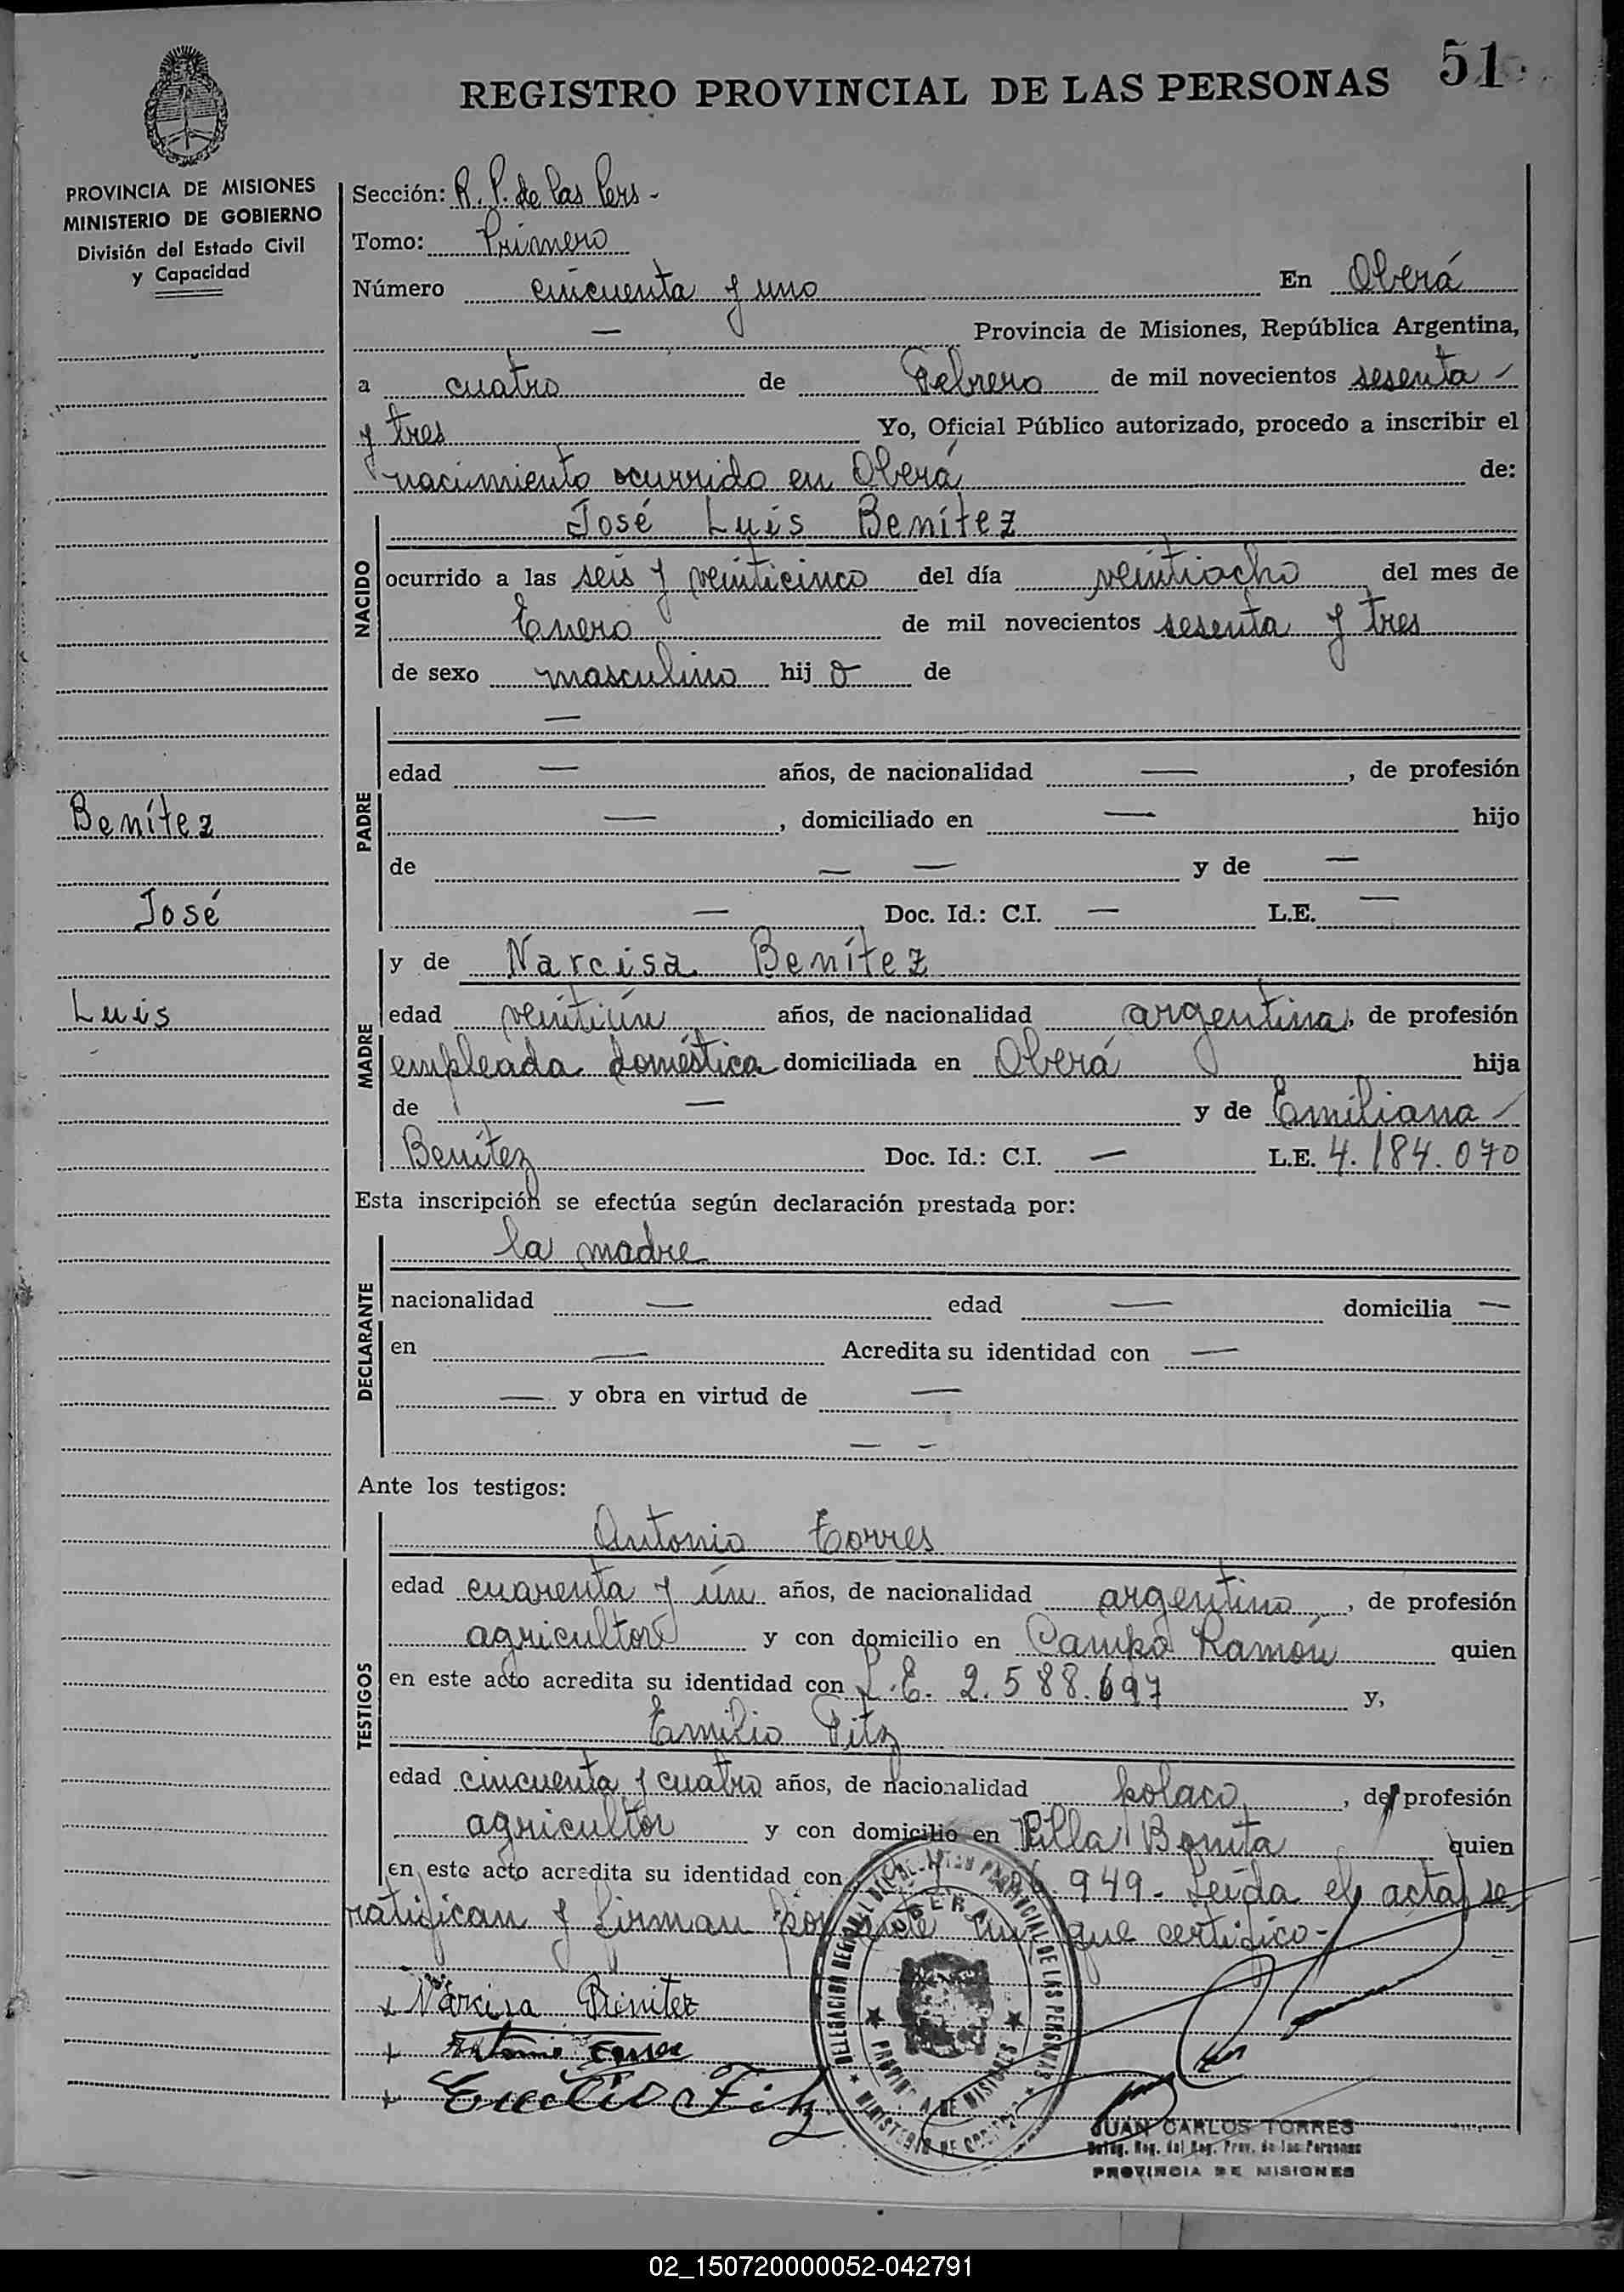 51
REGISTRO PROVINCIAL DE LAS PERSONAS
PROVINCIA DE MISIONES
MINISTERIO DE GOBIERNO
División del Estado Civil
y Capacidad
Sección: R. P. de las Pers -
Tomo: Primero
Número cincuenta y uno En Oberá
— Provincia de Misiones, República Argentina,
a cuatro de Febrero de mil novecientos sesenta -
y tres Yo, Oficial Público autorizado, procedo a inscribir el
nacimiento ocurrido en Oberá de:
José Luis Benítez
NACIDO
ocurrido a las seis y veinticinco del día veintiocho del mes de
Enero de mil novecientos sesenta y tres
de sexo masculino hij o de
PADRE
—
edad — años, de nacionalidad — , de profesión
— , domiciliado en — hijo
de — — y de —
— Doc. Id.: C.I. — L.E. —
Benítez
José
Luis
MADRE
y de Narcisa Benítez
edad veintiún años, de nacionalidad argentina, de profesión
empleada doméstica domiciliada en Oberá hija
de — y de Emiliana -
Benítez Doc. Id.: C.I. — L.E. 4.184.070
Esta inscripción se efectúa según declaración prestada por:
DECLARANTE
la madre
nacionalidad — edad — domicilia —
en — Acredita su identidad con —
— y obra en virtud de —
— -
Ante los testigos:
TESTIGOS
Antonio Torres
edad cuarenta y ún años, de nacionalidad argentino, de profesión
agricultor y con domicilio en Campo Ramón quien
en este acto acredita su identidad con L.E. 2.588.697 y,
Emilio Fitz
edad cincuenta y cuatro años, de nacionalidad polaco, de profesión
agricultor y con domicilio en Villa Bonita quien
en este acto acredita su identidad con 949 - Leída el acta, se
ratifican y firman por ante mí que certifico -
x Narcisa Benitez
x Antonio Torres
x Emilio Fitz
DELEGACION REGIONAL DEL REGISTRO PROVINCIAL DE LAS PERSONAS
OBERA
PROVINCIA DE MISIONES
MINISTERIO DE GOBIERNO
JUAN CARLOS TORRES
Deleg. Reg. del Reg. Prov. de las Personas
PROVINCIA DE MISIONES
02_150720000052-042791